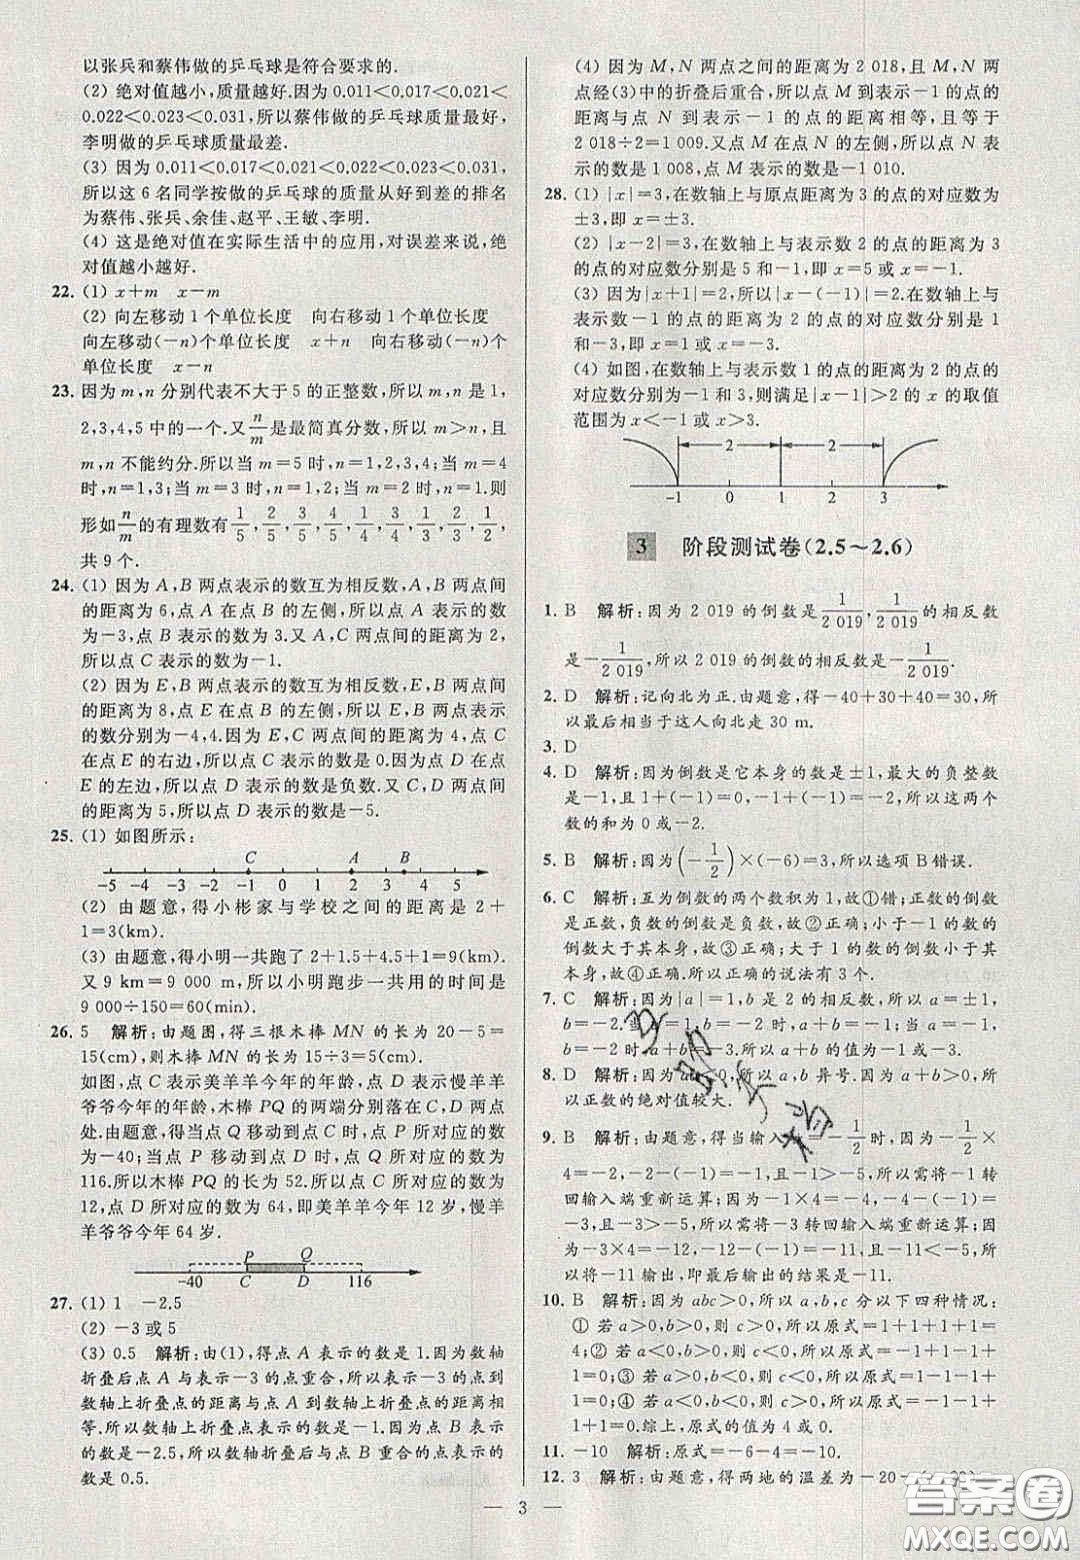 以张兵和蔡伟做的乒乓球是符合要求的.
(2) 绝对值越小,质量越好.因为 0.011<0.017<0.021<
0.022<0.023<0.031,所以蔡伟做的乒乓球质量最好,
李明做的乒乓球质量最差.
(3) 因为 0.011<0.017<0.021<0.022<0.023<0.031,
所以这 6 名同学按做的乒乓球的质量从好到差的排名
为蔡伟、张兵、余佳、赵平、王敏、李明.
(4) 这是绝对值在实际生活中的应用,对误差来说,绝
对值越小越好.
22. (1) x+m x-m
(2) 向左移动 1 个单位长度 向右移动 1 个单位长度
向左移动(-n)个单位长度 x+n 向右移动(-n)个
单位长度 x-n
23. 因为 m,n 分别代表不大于 5 的正整数,所以 m,n 是 1,
2,3,4,5 中的一个.又n/m是最简真分数,所以 m>n,且
m,n 不能约分.所以当 m=5 时,n=1,2,3,4;当 m=4
时,n=1,3;当 m=3 时,n=1,2;当 m=2 时,n=1.则
形如n/m的有理数有1/5,2/5,3/5,4/5,1/4,3/4,1/3,2/3,1/2,
共 9 个.
24. (1) 因为 A,B 两点表示的数互为相反数,A,B 两点间
的距离为 6,点 A 在点 B 的左侧,所以点 A 表示的数
为-3,点 B 表示的数为 3.又 AC 两点间的距离为 2,
所以点 C 表示的数为-1.
(2) 因为 E,B 两点表示的数互为相反数,E,B 两点间
的距离为 8,点 E 在点 B 的左侧,所以 E,B 两点表示
的数分别为-4,4.因为 E,C 两点间的距离为 4,点 C
在点 E 的右边,所以点 C 表示的数是 0.因为点 D 在点
E 的左边,所以点 D 表示的数是负数.又 CD 两点间的
距离为 5,所以点 D 表示的数是-5.
25. (1) 如图所示:
C A B
-5 -4 -3 -2 -1 0 1 2 3 4 5
(2) 由题意,得小彬家与学校之间的距离是 2+
1=3(km).
(3) 由题意,得小明一共跑了 2+1.5+4.5+1=9(km).
又 9 km=9 000 m,所以小明跑步一共用的时间是
9 000÷150=60(min).
26. 5 解析:由题图,得三根木棒 MN 的长为 20-5=
15(cm),则木棒 MN 的长为 15÷3=5(cm).
如图,点 C 表示美羊羊今年的年龄,点 D 表示慢羊羊
爷爷今年的年龄,木棒 PQ 的两端分别落在 C,D 两点
处.由题意,得当点 Q 移动到点 C 时,点 P 所对应的数
为-40;当点 P 移动到点 D 时,点 Q 所对应的数为
116.所以木棒 PQ 的长为 52.所以点 C 对应的数为
12,点 D 对应的数为 64,即美羊羊今年 12 岁,慢羊
羊爷爷今年 64 岁.
P Q
-40 C D 116
27. (1) 1 -2.5
(2) -3 或 5
(3) 0.5 解析:由(1),得点 A 表示的数是 1.因为数轴
折叠后点 A 与表示-3 的点重合,所以表示-3 的点到
数轴上折叠点的距离与点 A 到数轴上折叠点的距离相
等.所以数轴上折叠点表示的数是-1.因为点 B 表示
的数是-2.5,所以数轴折叠后与点 B 重合的点表示
的数是 0.5.
(4) 因为 M,N 两点之间的距离为 2 018,因为 M,N 两
点经(3)中的折叠后重合,所以点 M 到表示-1 的点的
距离与点 N 到表示-1 的点的距离相等,且等于
2 018÷2=1 009.又点 M 在点 N 的左侧,所以点 N 表
示的数是 1 008,点 M 表示的数是-1 010.
28. (1) |x|=3,在数轴上与原点距离为 3 的点的对应数为
±3,即 x=±3.
(2) |x-2|=3,在数轴上与表示数 2 的点的距离为 3
的点的对应数分别是 5 和-1,即 x=5 或 x=-1.
(3) 因为|x+1|=2,所以|x-(-1)|=2.在数轴上与
表示数-1 的点的距离为 2 的点的对应数分别是 1
和-3,即 x=1 或 x=-3.
(4) 如图,在数轴上与表示数 1 的点的距离为 2 的点的
对应数分别为-1 和 3,则满足|x-1|>2 的 x 的取值
范围为 x<-1 或 x>3.
2 2
-1 0 1 2 3
3 阶段测试卷(2.5～2.6)
1. B 解析:因为 2 019 的倒数是1/2 019,1/2 019的相反数
是-1/2 019,所以 2 019 的倒数的相反数是-1/2 019.
2. D 解析:记向北为正.由题意,得-40+30+40=30,所
以最后相当于这人向北走 30 m.
3. D
4. D 解析:因为倒数是它本身的数是±1,最大的负整数
是-1,且 1+(-1)=0,-1+(-1)=-2,所以这两个
数的和为 0 或-2.
5. B 解析:因为(-1/2)×(-6)=3,所以选项 B 错误.
6. C 解析:互为倒数的两个数积为 1,故①错;正数的倒数
是正数,负数的倒数是负数,故②正确;小于-1 的数的
倒数大于其本身,故③正确;大于 1 的数的倒数小于其
本身,故④正确.所以正确的说法有 3 个.
7. C 解析:因为|a|=1,b 是 2 的相反数,所以 a=±1,
b=-2.当 a=1,b=-2 时,a+b=-1;当 a=-1,
b=-2 时,a+b=-3.所以 a+b 的值为-1 或-3.
8. D 解析:因为 ab<0,所以 a,b 异号.因为 a+b>0,所
以正数的绝对值较大.
9. B 解析:由题意,得当输入 -1/2时,因为-1/2×
4=-2,-2-(-1)=-1,且-1>-5,所以需将-1 转
回输入端重新运算;因为-1×4=-4,-4-(-1)=
-3,且-3>-5,所以需将-3 转回输入端重新运算;因为
-3×4=-12,-12-(-1)=-11,且-11<-5,所以
将-11 输出,即最后输出的结果是-11.
10. B 解析:因为 abc>0,所以 a,b,c 分以下四种情况:
① 若 a>0,b>0,则 c>0,所以原式=1+1+1+1=
4;② 若 a>0,b<0,则 c<0,所以原式=1-1-1+
1=0;③ 若 a<0,b>0,则 c<0,所以原式=-1+1-
1+1=0;④ 若 a<0,b<0,则 c>0,所以原式=-1-
1+1+1=0.综上,原式的值为 4 或 0.
11. -10 解析:原式=-6-4=-10.
12. 3 解析:由题意,得两地的温差为-20-
— 3 —
答案圈
MXQE.COM